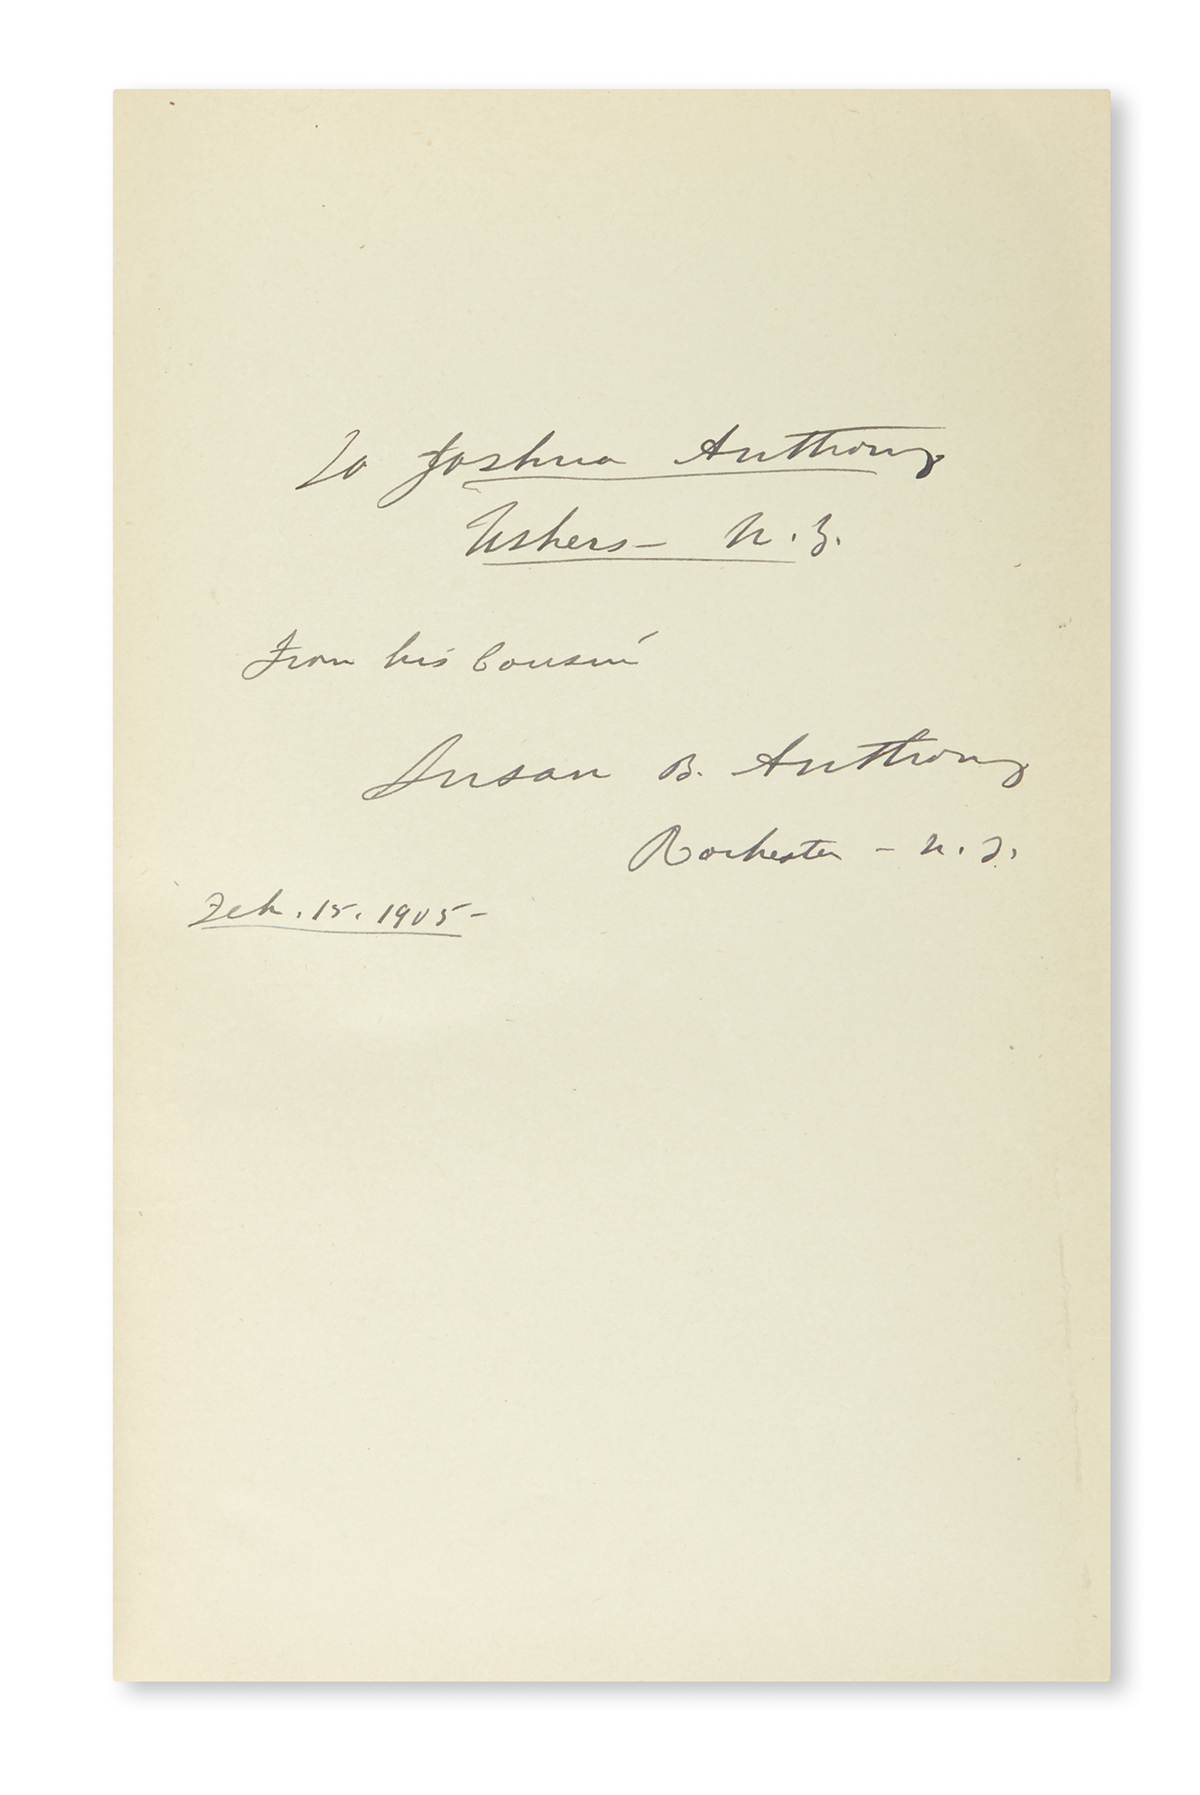 To Joshua Anthony
Ushers - N. Y.
From his Cousin
Susan B. Anthony
Rochester - N. Y.
Feb. 15. 1905 -